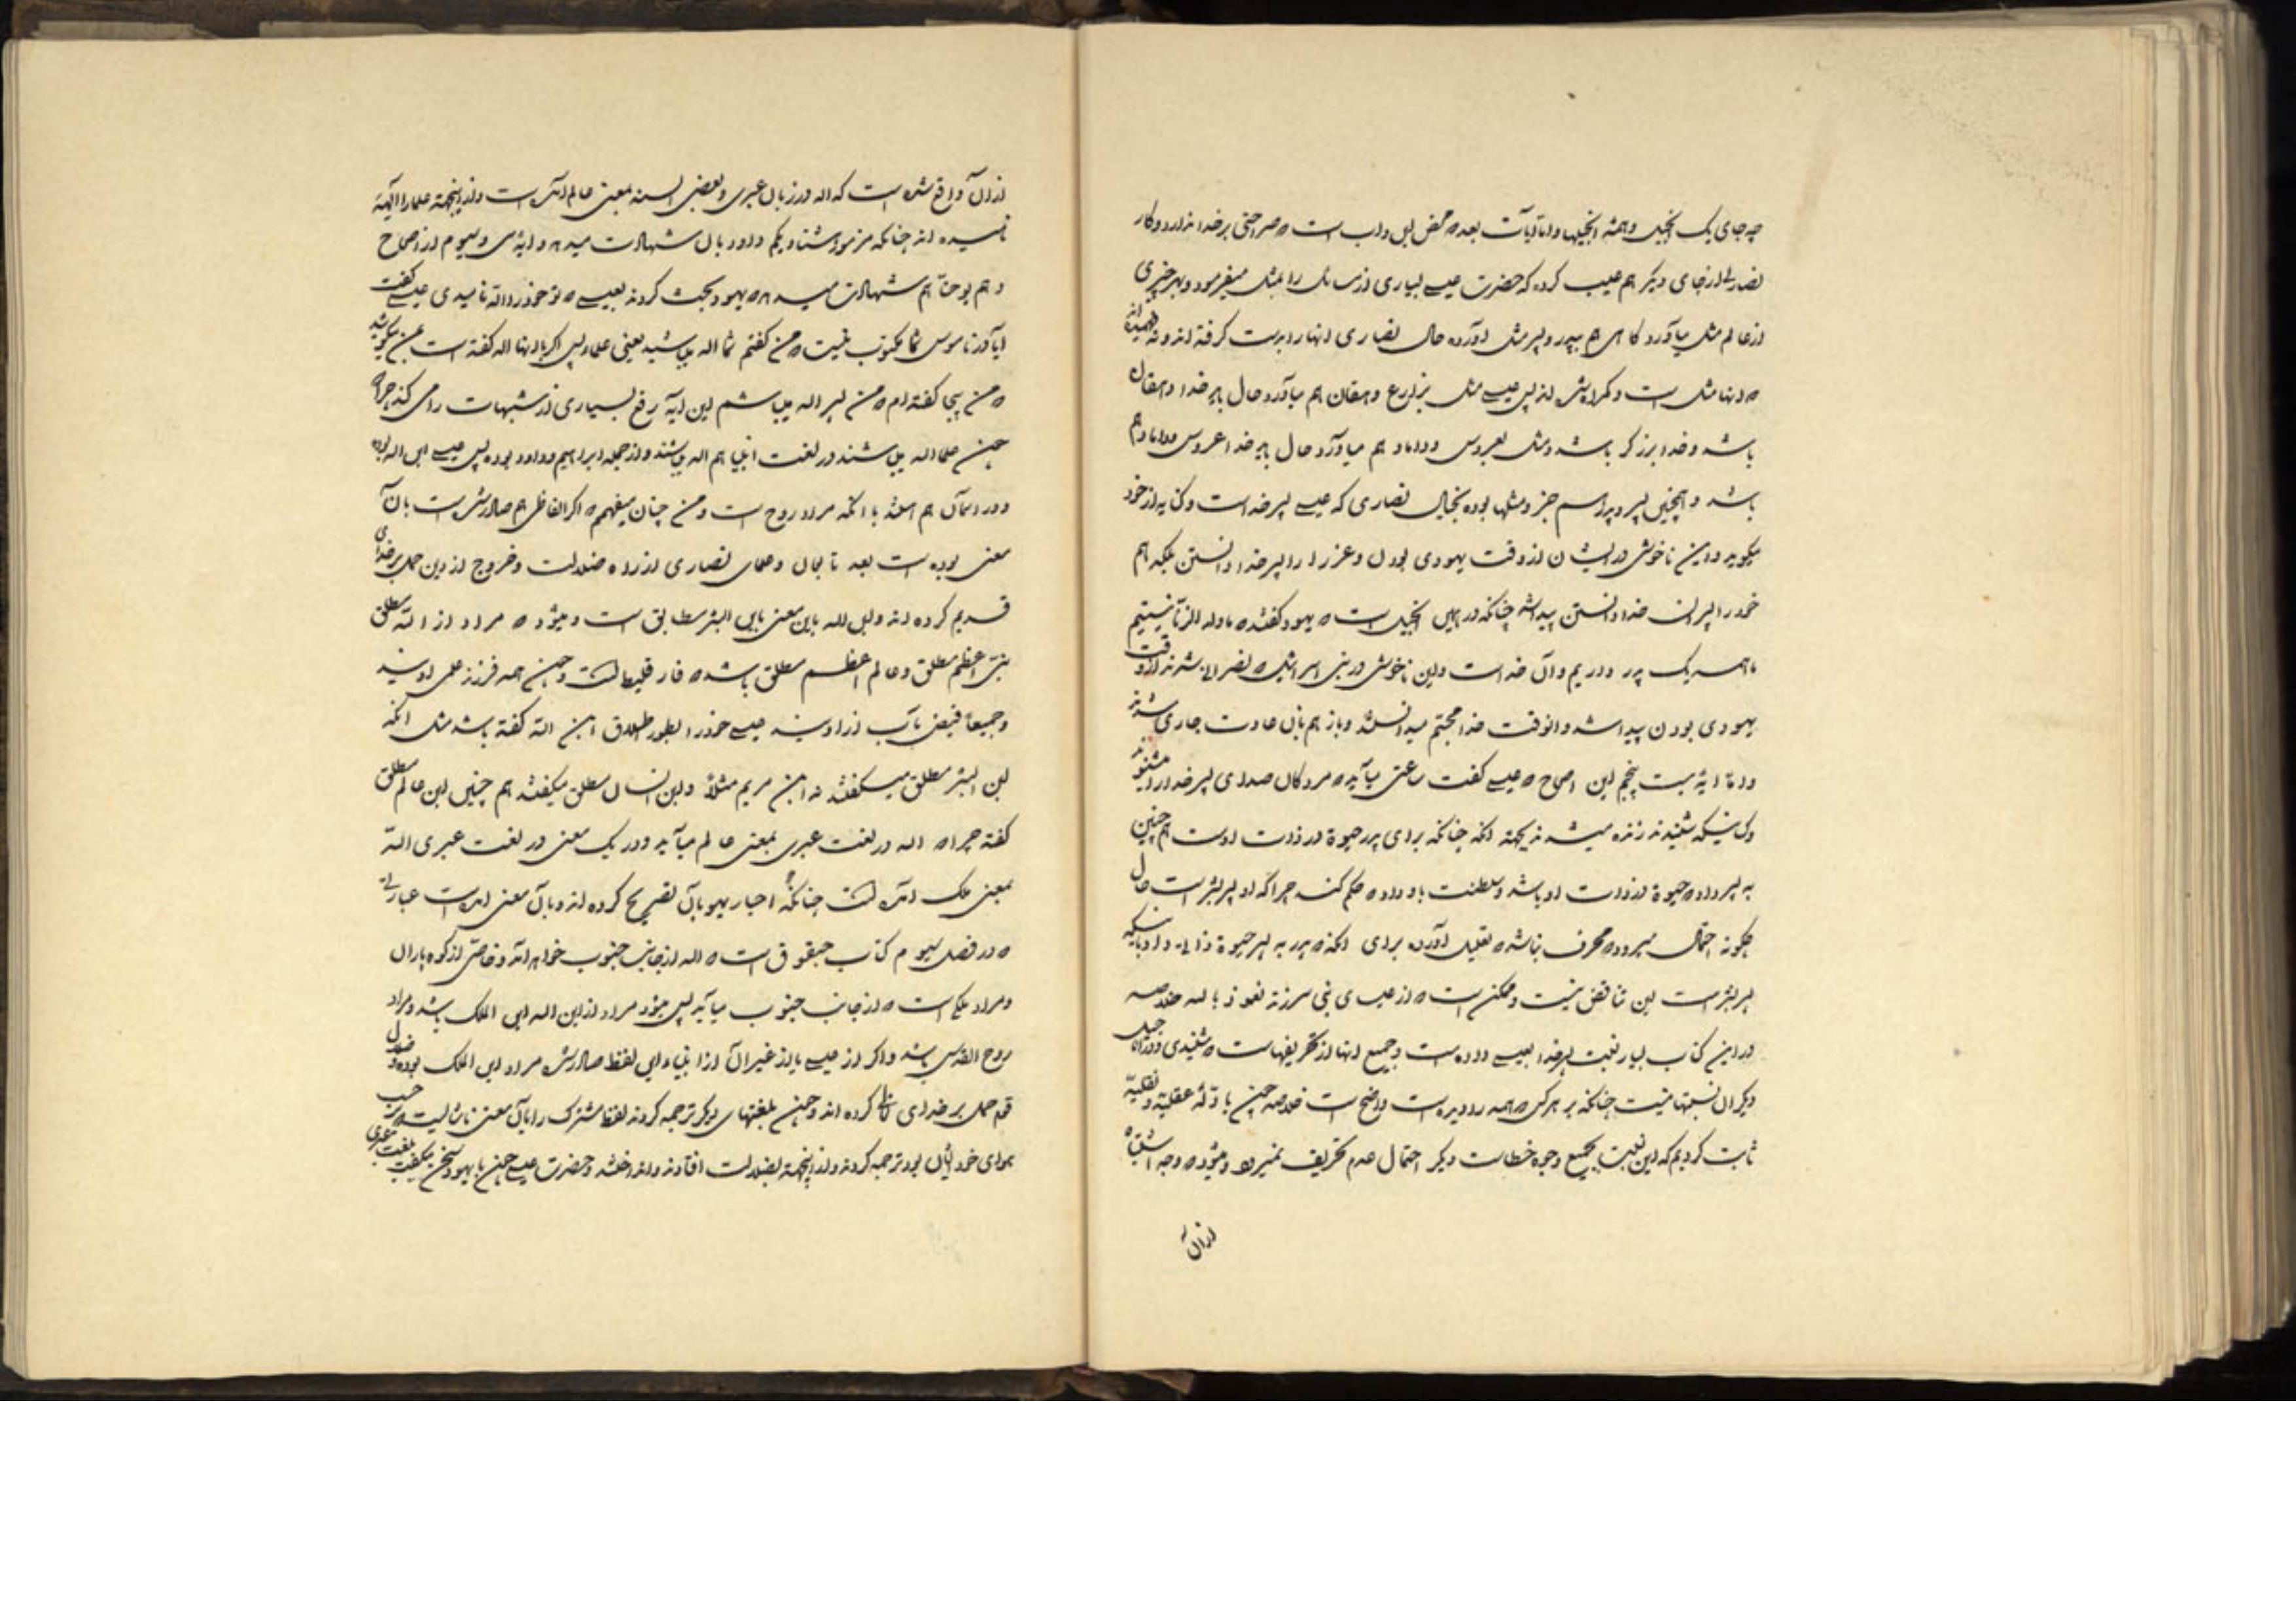 چه جای یک انجیل و همهٔ انجیلها و اما آیات بعد ه محض ابن و اب است ه صراحتی بر خدا ندارد و کار
نصاری از جای دیگر هم عیب کرده که حضرت عیسی بسیاری از مسائل را بمثل میفرمود و بهر چیزی
از عالم مثل میآورد کاهی هم بپدر و پسر مثل آورده حال نصاری اینها را بدست کرفته اند و نفهمیده اند
ه اینها مثل است و کمراه شده اند پس عیسی مثل بزارع و دهقان هم میآورد حال باید خدا دهقان
باشد و خدا برزکر باشد و مثل بعروس و داماد هم میآورد حال باید خدا عروس و داماد هم
باشد و همچنین پسر و پدر اسم جزو مثلها بوده بخیال نصاری که عیسی پسر خداست و کنایه از خود
میکوید و این ناخوشی در ایشان از وقت یهودی بودن و عزرا را پسر خدا دانستن بلکه هم
خود را پسران خدا دانستن پیدا شد چنانکه در همین انجیل است ه یهود کفتند ه ما ولد الزنا نیستیم
ما همه یک پدر داریم و آن خداست و این ناخوشی در بنی اسرائیل ه نصرانی شدند از وقت
یهودی بودن پیدا شد و انوقت خدا مجتم میدانستند و باز هم بان عادت جاری شدند
و اما ایهٔ بیست پنجم این اصحاح ه عیسی کفت ساعتی میآید ه مردکان صدای پسر خدا را میشنوند
و کسانیکه شنیدند زنده میشوند بجهته انکه چنانکه برای پدر حیوة در ذات اوست همچنین
به پسر داده حیوة در ذات او باشد و سلطنت باو داده حکم کند چرا که او پسر بشر است حال
چکونه احتمال میرود ه محرف نباشد ه تعلیل آورده برای انکه ه پدر به پسر حیوة ذاتی داد باینکه
پسر بشر است این تناقض نیست و ممکن است ه از عیسای نبی سرزند نعوذ بالله خلاصه
در این کتاب بسیار نسبت پسر خدا بعیسی داده است و جمیع اینها از تحریفهاست ه شنیدی و در اناجیل
دیگر ان نسبتها نیست چنانکه بر هر کس ه همه را دیده است واضح است خلاصه چون بادلهٔ عقلیه و نقلیه
ثابت کردیم که این نسبت بجمیع وجوه خطاست دیگر احتمال عدم تحریف نمیرود و میشود ه وجه اشتباه
از ان
از ان واقع شده است که اله در زبان عبری و بعضی السنه بمعنی عالم آمده است و از اینجهته علما را آلهه
نامیده اند چنانکه مزمور هشتاد و یکم داود بان شهادت میدهد و ایهٔ سی و سیوم از اصحاح
دهم یوحنا هم شهادت میدهد ه یهود بحث کردند بعیسی ه تو خود را اله نامیدی عیسی کفت
ایا در ناموس شما مکتوب نیست ه من کفتم شما اله میباشید یعنی علما پس اکر باینها اله کفته است بمن میکوئید
ه من بیجا کفته ام ه من پسر اله میباشم این ایه رفع بسیاری از شبهات را می کند چرا ه
چون علما اله میباشند در لغت انبیا هم اله میباشند و از جمله ابراهیم و داود بوده پس عیسی ابن اله بوده
و در اسمان هم هستند با انکه مراد روح است و من چنان میفهمم ه اکر الفاظی هم صادر شده است بان
معنی بوده است بعد تابعان و علمای نصاری از راه ضلالت و خروج از دین حمل بر خدای
قدیم کرده اند و ابن اله باین معنی بابن البشر مطابق است و میشود ه مراد از اله مطلق
نبی اعظم مطلق و عالم اعظم مطلق باشد ه فارقلیطا است و چون همه فرزند علمی اویند
و جمیعا فیض یاب از اویند عیسی خود را بطور اطلاق ابن اله کفته باشد مثل انکه
ابن البشر مطلق میکفتند نه ابن مریم مثلا و ابن انسان مطلق میکفتند هم چنین ابن عالم مطلق
کفته چرا ه اله در لغت عبری بمعنی عالم میآید و در یک معنی در لغت عبری اله
بمعنی ملک آمده است چنانکه احبار یهود بان تصریح کرده اند و بان معنی است عبارتی
ه در فصل سیوم کتاب حبقوق است ه اله از جانب جنوب خواهد آمد و خاصی از کوه پاران
و مراد ملکی است ه از جانب جنوب میآید پس میشود مراد از ابن اله ابن الملک باشد و مراد
روح القدس باشد و اکر از عیسی یا از غیر ان از انبیاء این لفظ صادر شده مراد ابن الملک بوده و ضلال
قوم حمل بر خدای کرده اند و چون بلغتهای دیگر ترجمه کردند لفظ مشترک را بان معنی ه حسب
هوای خودشان بود ترجمه کردند و از اینجهته بضلالت افتادند و انداختند و حضرت عیسی چون با یهود سخن میکفت بلغت عبری